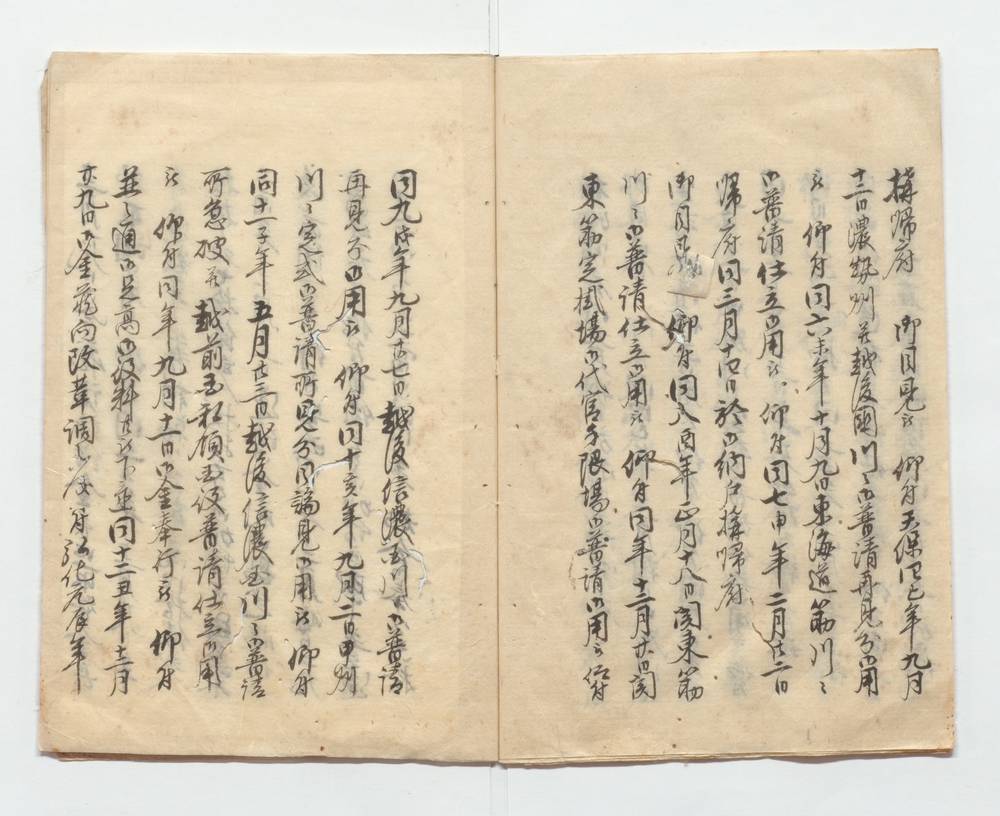 構帰府 御目見被 仰付天保四巳年九月
十二日濃勢州并越後国川々御普請再見分御用
被 仰付同六未年十月九日東海道筋川々
御普請仕立御用被 仰付同七申年二月廿二日
帰府同三月十四日於御納戸構帰府
御目見 仰付同八酉年正月十八日関東筋
川々御普請仕立御用被 仰付同年十二月廿四日関
東筋定掛場御代官手限場御普請御用被仰付
同九戌年九月廿七日越後信濃国川々御普請
再見分御用被 仰付同十亥年九月二日甲州
川々定式御普請所見分目論見御用被 仰付
同十一子年五月廿三日越後信濃国川々御普請
所急破并越前国私領国役普請仕立御用
被 仰付同年九月十一日御金奉行被 仰付
並之通御足高御役料被下置同十二丑年十二月
廿九日御金蔵向改革調 弘化元辰年